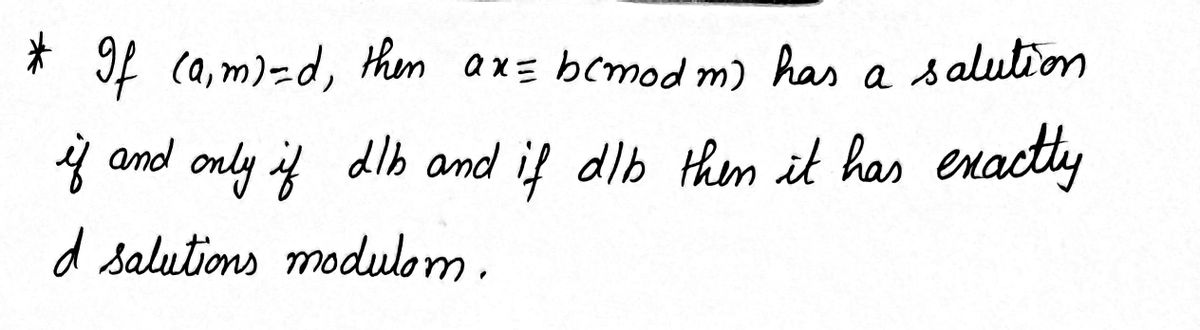 * If (a,m)=d, then ax≡ b(mod m) has a salution
if and only if d|b and if d|b then it has exactly
d salutions modulo m.